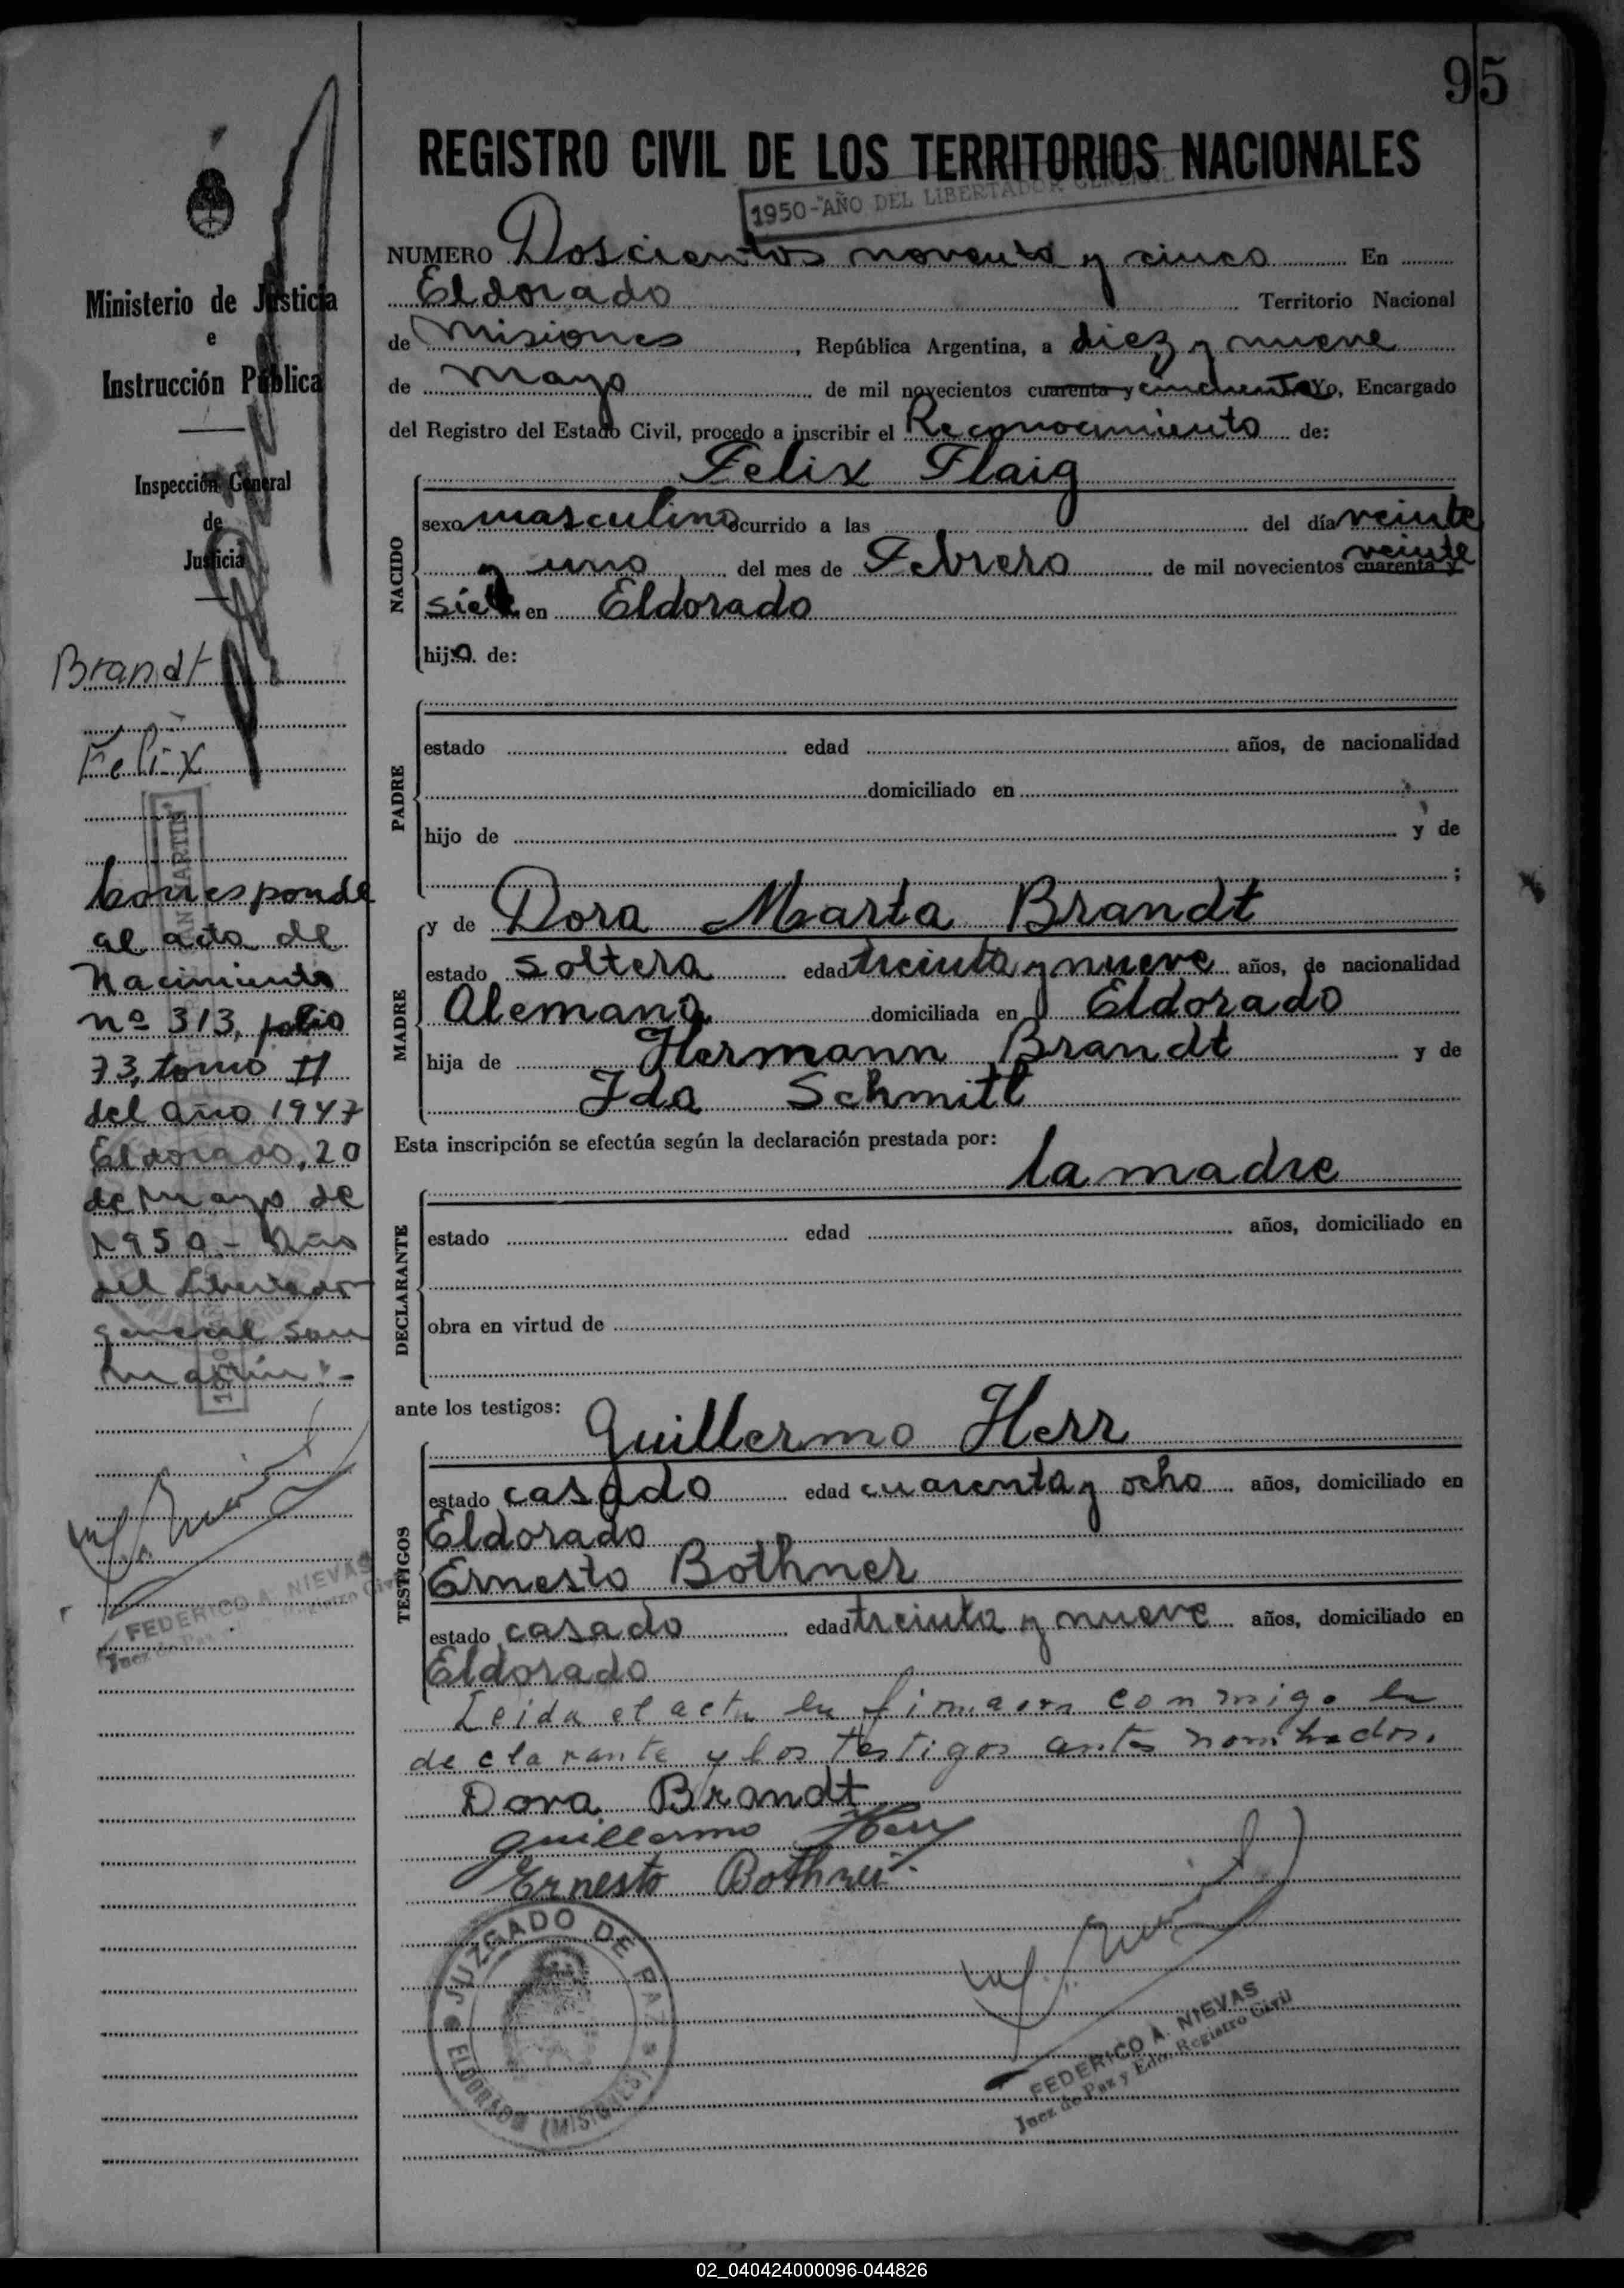 95
REGISTRO CIVIL DE LOS TERRITORIOS NACIONALES
1950 - "AÑO DEL LIBERTADOR GENERAL
NUMERO Doscientos noventa y cinco En
Eldorado Territorio Nacional
de Misiones, República Argentina, a diez y nueve
de Mayo de mil novecientos cuarenta y cincuenta Yo, Encargado
del Registro del Estado Civil, procedo a inscribir el Reconocimiento de:
NACIDO
Felix Flaig
sexo masculino ocurrido a las del día veinte
y uno del mes de Febrero de mil novecientos cuarenta y veinte
siete en Eldorado
hijo de:
PADRE
estado edad años, de nacionalidad
domiciliado en
hijo de y de
;
MADRE
y de Dora Marta Brandt
estado soltera edad treinta y nueve años, de nacionalidad
Alemana domiciliada en Eldorado
hija de Hermann Brandt y de
Ida Schmitt
Esta inscripción se efectúa según la declaración prestada por:
la madre
DECLARANTE
estado edad años, domiciliado en
obra en virtud de
ante los testigos:
TESTIGOS
Guillermo Herr
estado casado edad cuarenta y ocho años, domiciliado en
Eldorado
Ernesto Bothner
estado casado edad treinta y nueve años, domiciliado en
Eldorado
Leida el acta la firmaron conmigo la
declarante y los testigos antes nombrados.
Dora Brandt
Guillermo Herr
Ernesto Bothner
JUZGADO DE PAZ
ELDORADO (MISIONES)
FEDERICO A. NIEVAS
Juez de Paz y Edo. Registro Civil
Ministerio de Justicia
e
Instrucción Pública
Inspección General
de
Justicia
Brandt
Felix
Corresponde
al acta de
Nacimiento
nº 313, folio
73, tomo II
del año 1947
Eldorado, 20
de Mayo de
1950.- Año
del Libertador
general San
Martín.-
FEDERICO A. NIEVAS
Juez de Paz Registro Civil
02_040424000096-044826